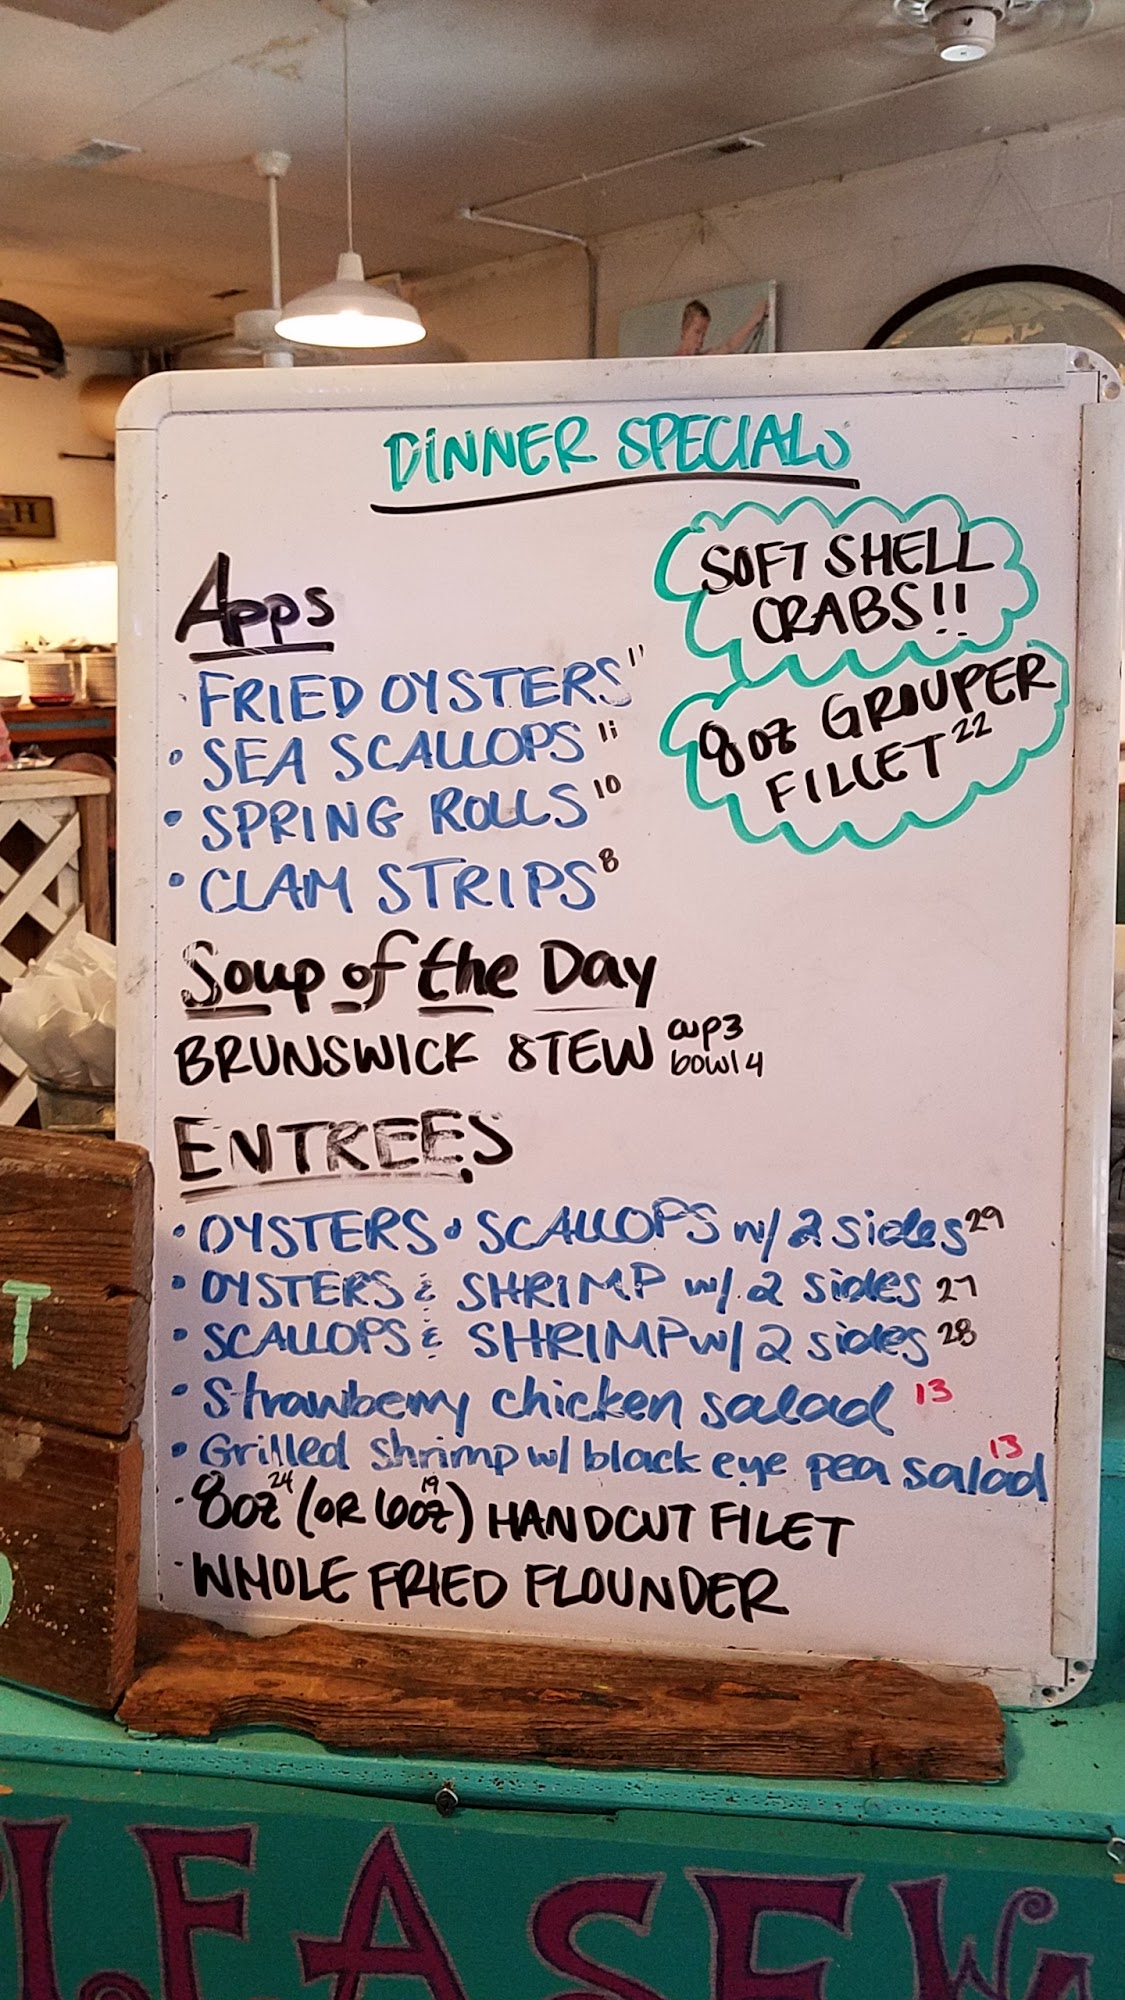 DINNER SPECIALS
SOFT SHELL
CRABS!!
8oz GROUPER
FILLET 22
Apps
FRIED OYSTERS 11
• SEA SCALLOPS 11
• SPRING ROLLS 10
• CLAM STRIPS 8
Soup of the Day
BRUNSWICK STEW cup 3
bowl 4
ENTREES
• OYSTERS & SCALLOPS w/ 2 sides 29
• OYSTERS & SHRIMP w/ 2 sides 27
• SCALLOPS & SHRIMP w/ 2 sides 28
• Strawberry chicken salad 13
• Grilled shrimp w/ black eye pea salad 13
• 8oz 24 (OR 6oz 19) HANDCUT FILET
• WHOLE FRIED FLOUNDER
T
H
PLEASE Wa